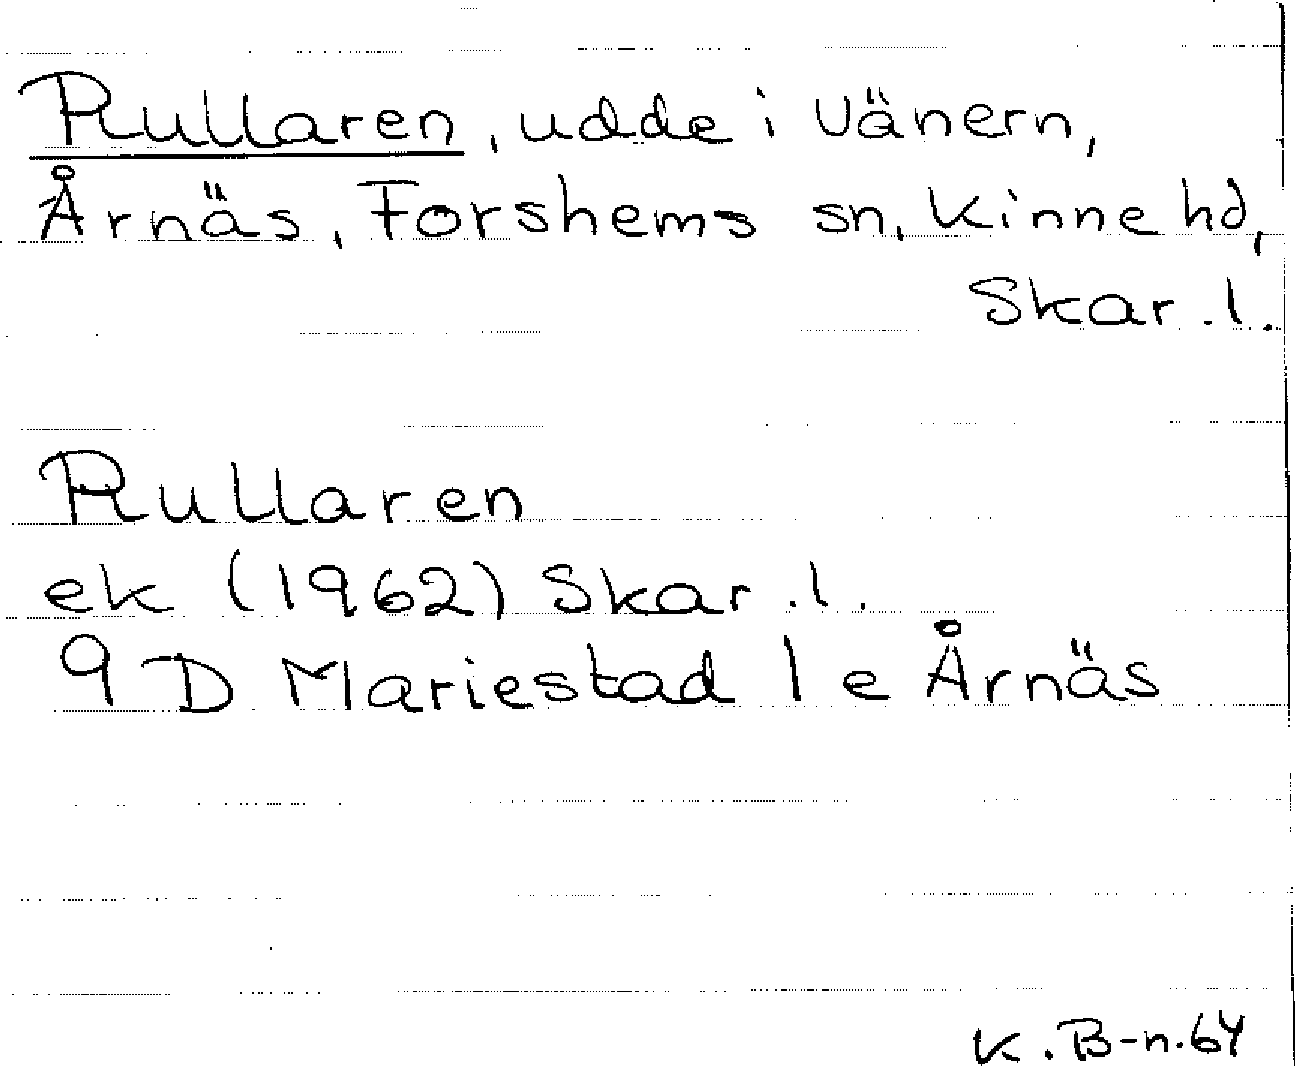 Rullaren, udde i Vänern,
Årnäs, Forshems sn, Kinne hd,
Skar. l.
Rullaren
ek (1962) Skar. l.
9 D Mariestad 1 e Årnäs
K. B-n. 64